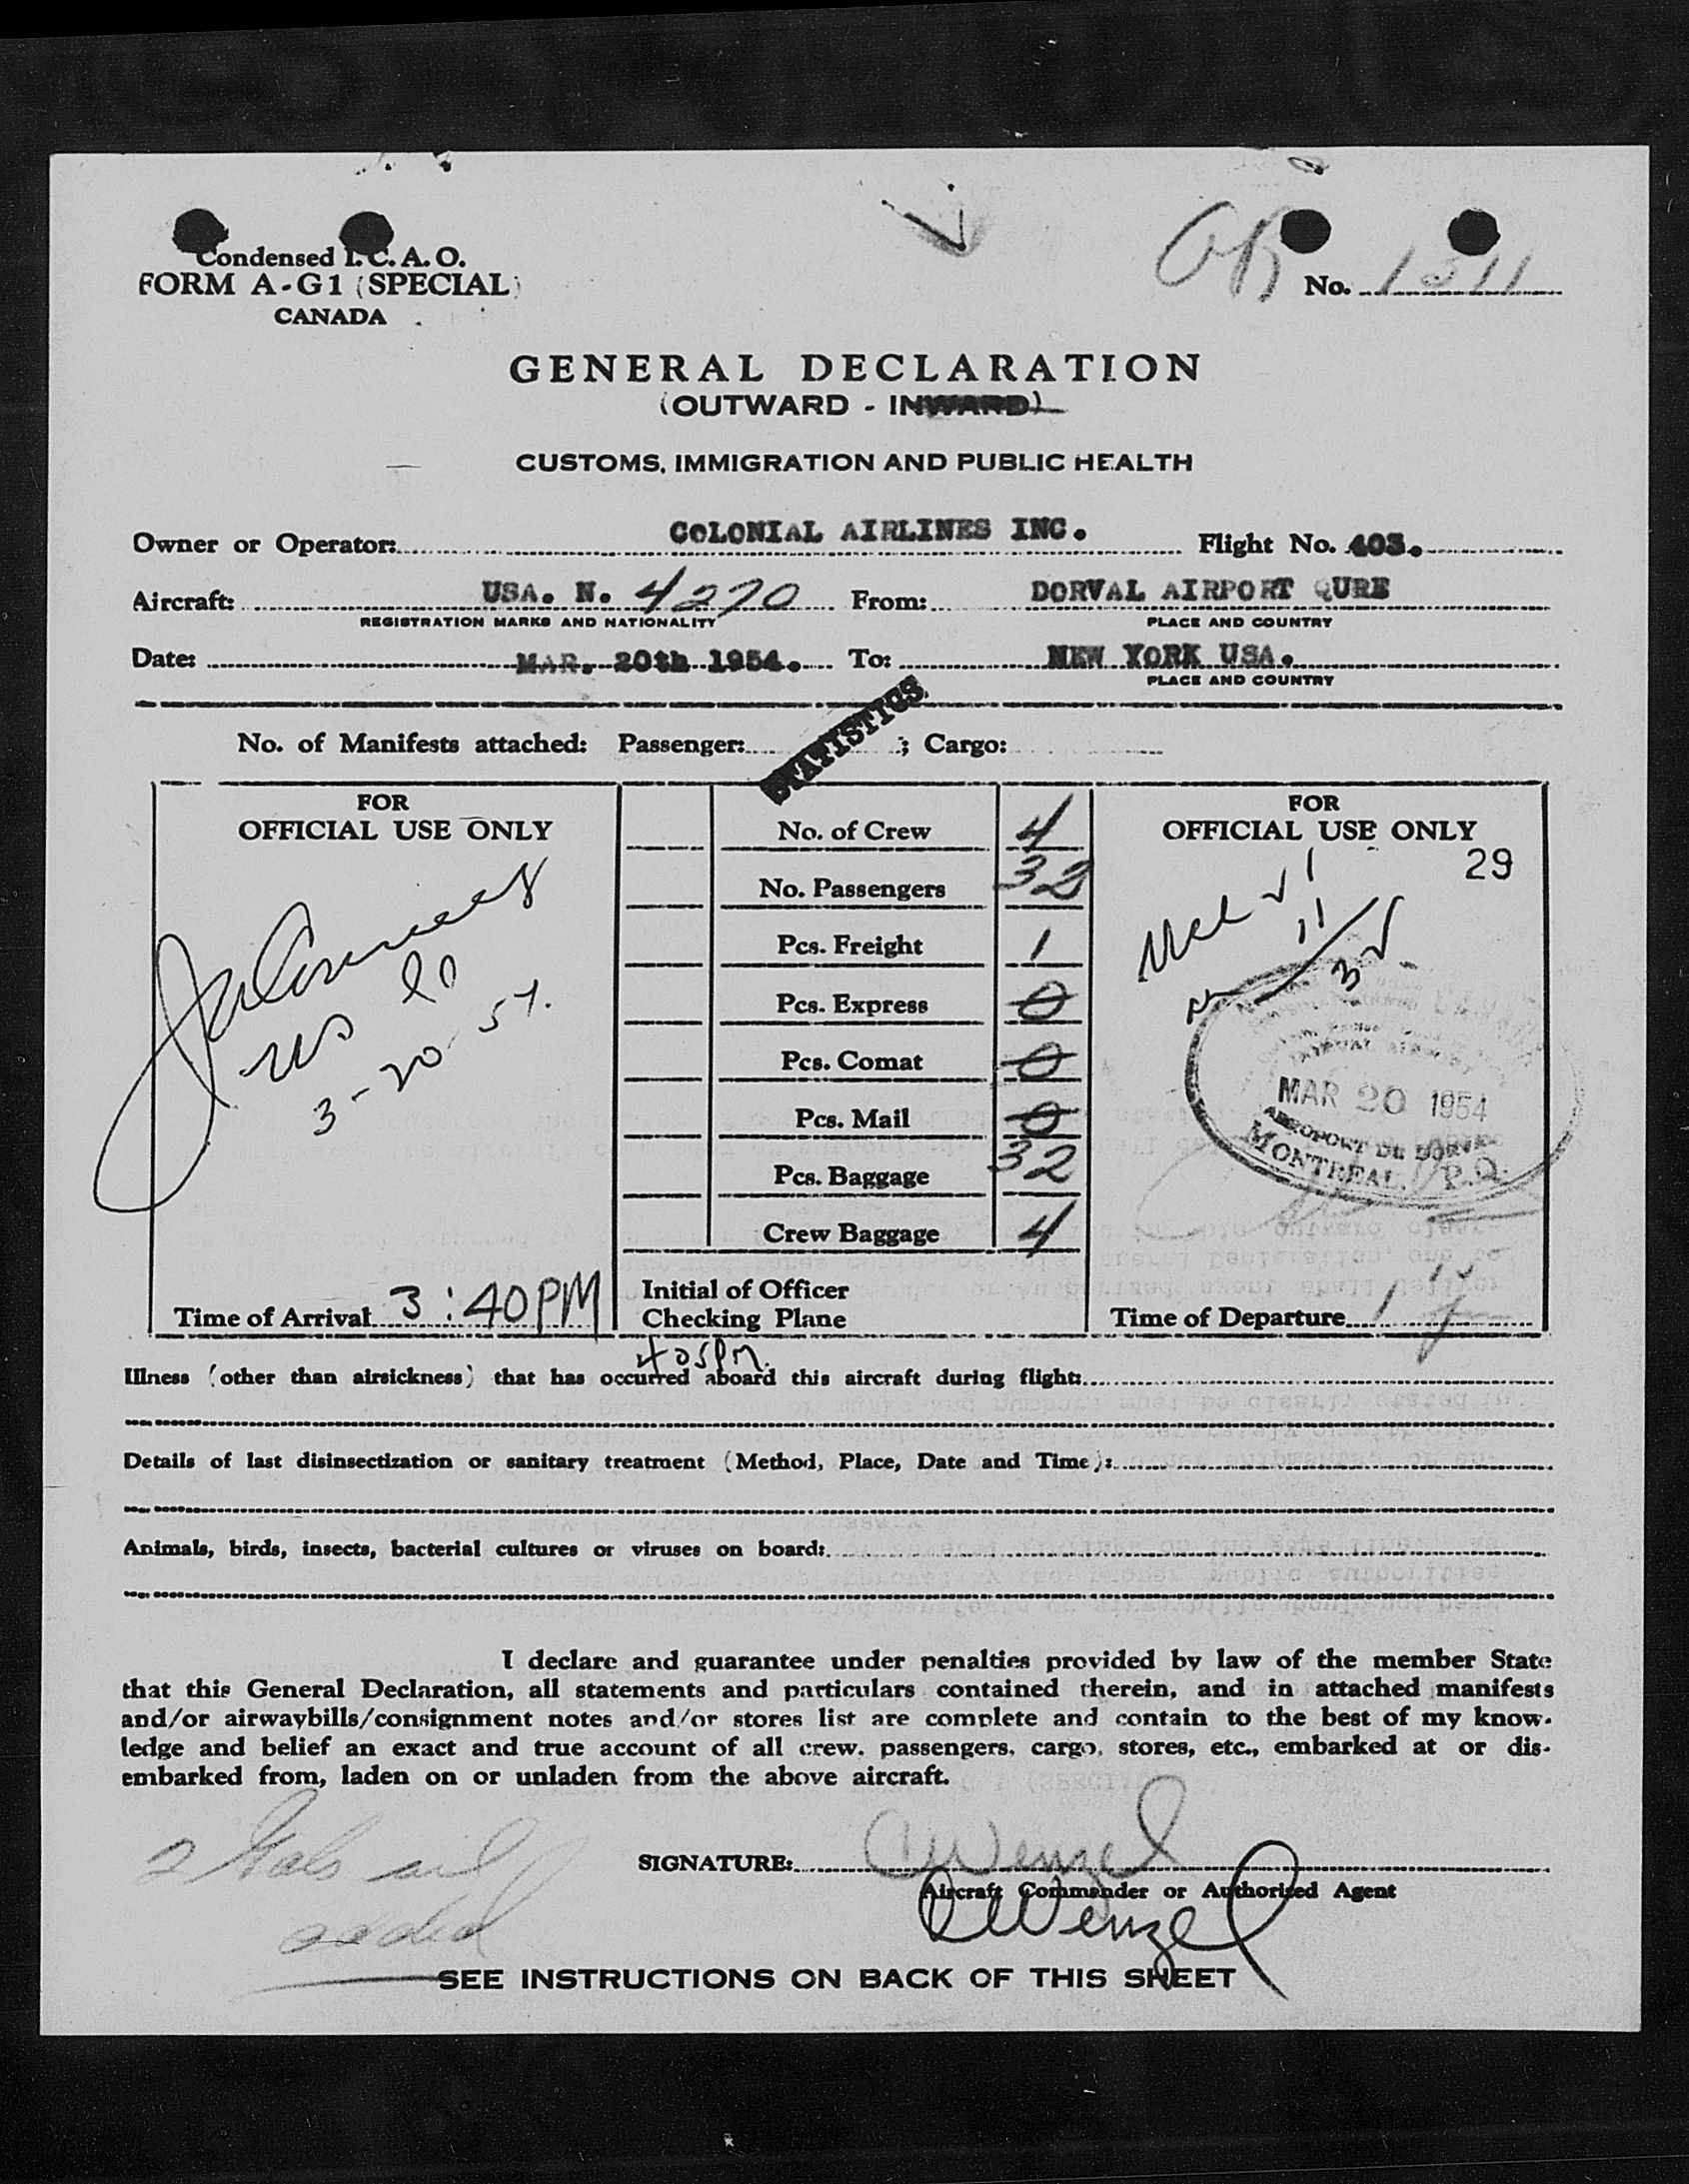 Condensed I.C.A.O.
FORM A-G1 (SPECIAL)
CANADA
No. 1311
GENERAL DECLARATION
(OUTWARD - INWARD)
CUSTOMS, IMMIGRATION AND PUBLIC HEALTH
Owner or Operator: COLONIAL AIRLINES INC. Flight No. 403.
Aircraft: USA. N. 4270 From: DORVAL AIRPORT QUBE
REGISTRATION MARKS AND NATIONALITY PLACE AND COUNTRY
Date: MAR. 20th 1954. To: NEW YORK USA.
PLACE AND COUNTRY
STATISTICS
No. of Manifests attached: Passenger: ; Cargo:
FOR
OFFICIAL USE ONLY
3-20-54.
Time of Arrival 3:40PM
No. of Crew 4
No. Passengers 32
Pcs. Freight 1
Pcs. Express 0
Pcs. Comat 0
Pcs. Mail 0
Pcs. Baggage 32
Crew Baggage 4
Initial of Officer
Checking Plane
405PM.
FOR
OFFICIAL USE ONLY
29
11
32
MAR 20 1954
AEROPORT DE DORVAL
MONTREAL, P.Q.
Time of Departure
Illness (other than airsickness) that has occurred aboard this aircraft during flight:
Details of last disinsectization or sanitary treatment (Method, Place, Date and Time):
Animals, birds, insects, bacterial cultures or viruses on board:
I declare and guarantee under penalties provided by law of the member State
that this General Declaration, all statements and particulars contained therein, and in attached manifests
and/or airwaybills/consignment notes and/or stores list are complete and contain to the best of my know-
ledge and belief an exact and true account of all crew, passengers, cargo, stores, etc., embarked at or dis-
embarked from, laden on or unladen from the above aircraft.
SIGNATURE: Wenzel
Aircraft Commander or Authorized Agent
Wenzel
added
SEE INSTRUCTIONS ON BACK OF THIS SHEET